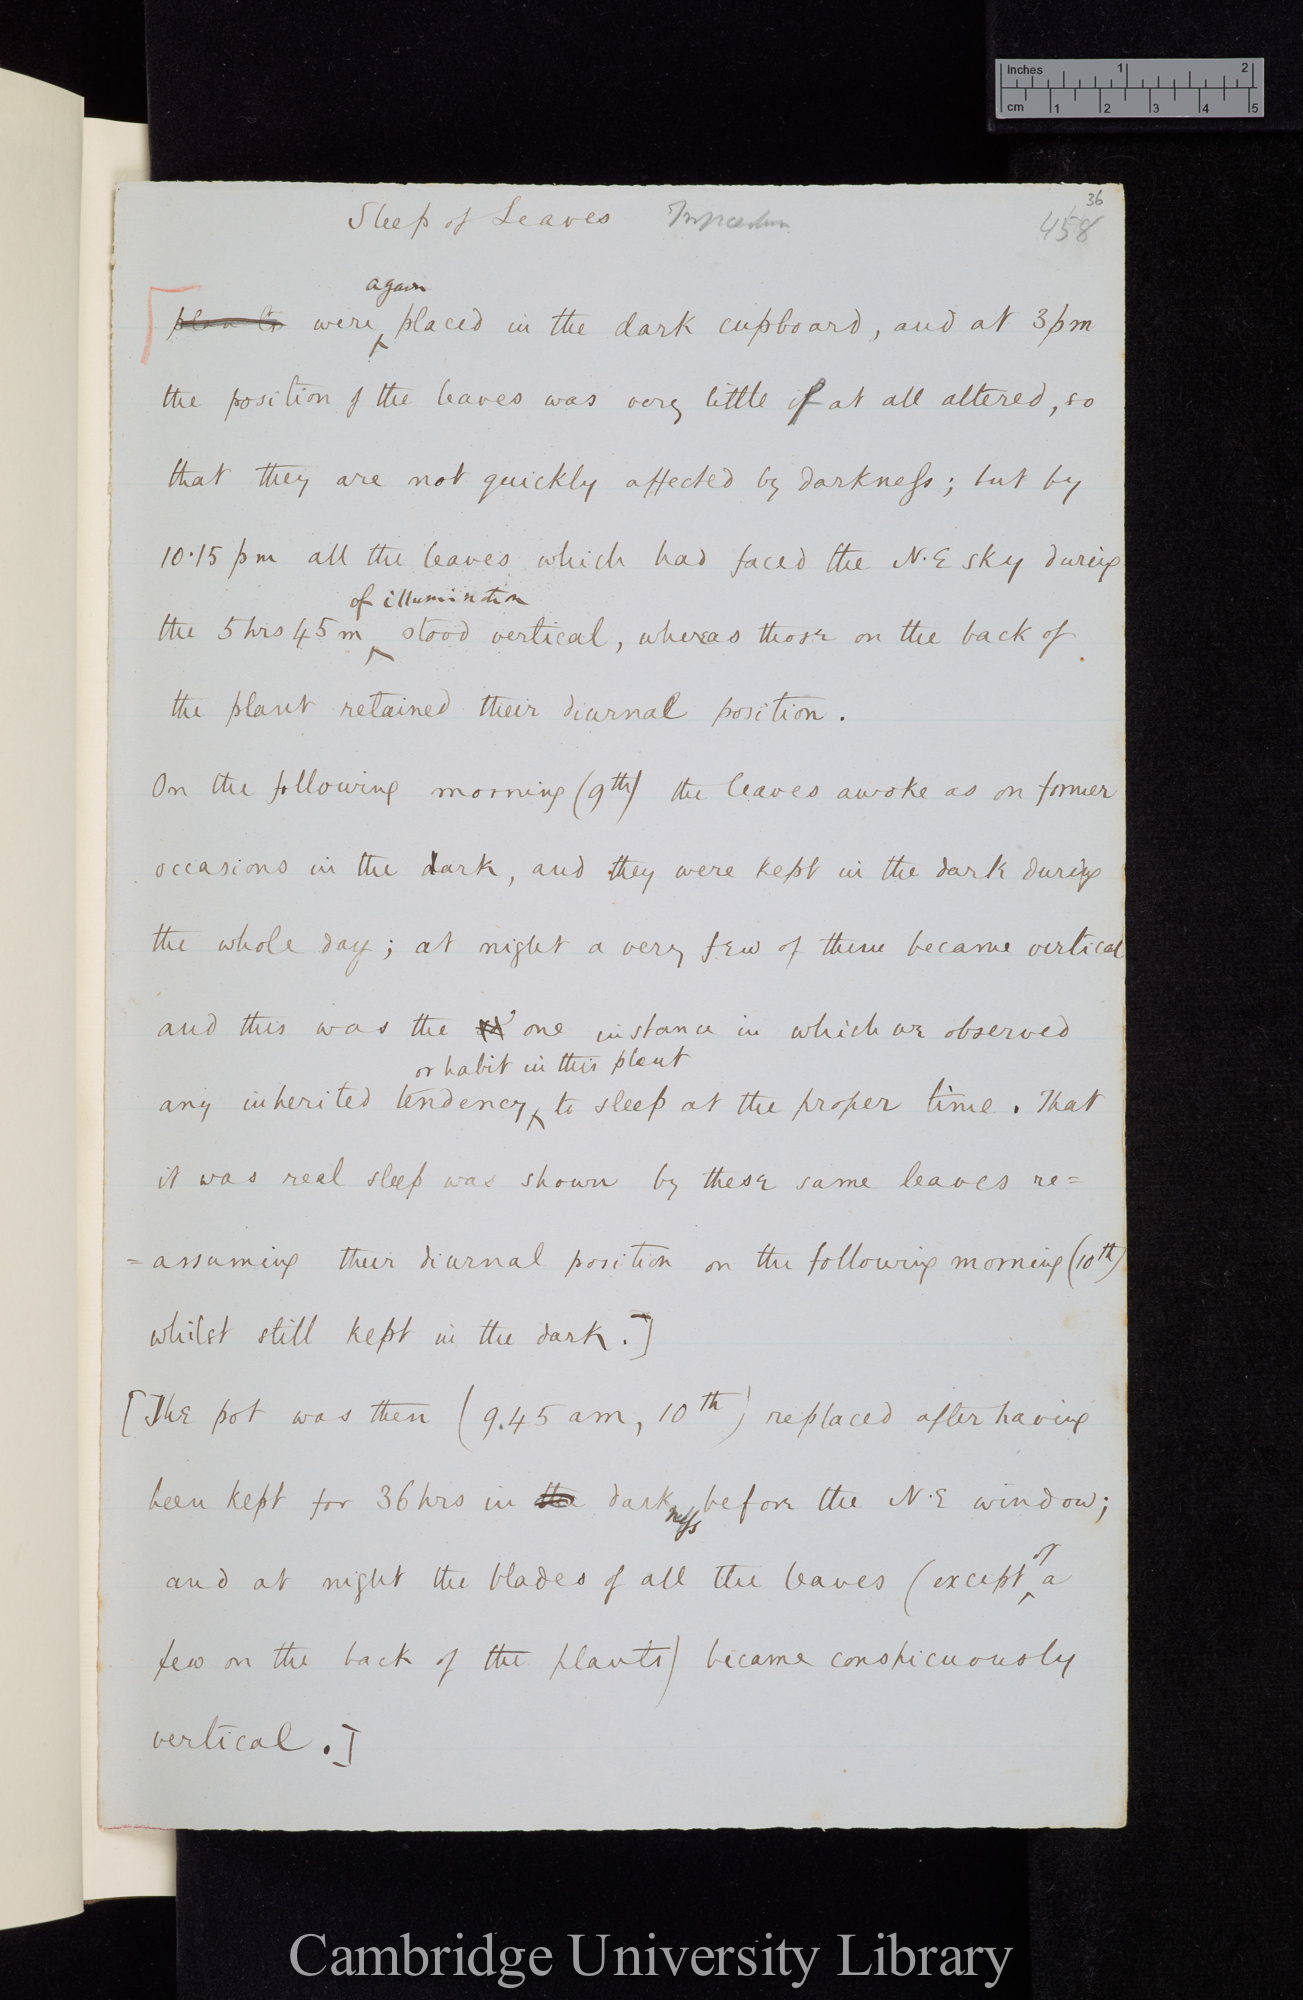 Inches 1 2
cm 1 2 3 4 5
36
Sleep of Leaves Tropaeolum 458
plants were again placed in the dark cupboard, and at 3 pm
the position of the leaves was very little if at all altered, so
that they are not quickly affected by darkness; but by
10.15 pm all the leaves which had faced the N.E sky during
the 5 hrs 45 m of illumination stood vertical, whereas those on the back of
the plant retained their diurnal position.
On the following morning (9th) the leaves awoke as on former
occasions in the dark, and they were kept in the dark during
the whole day; at night a very few of them became vertical
and this was the one instance in which we observed
any inherited tendency or habit in this plant to sleep at the proper time. That
it was real sleep was shown by these same leaves re=
=assuming their diurnal position on the following morning (10th)
whilst still kept in the dark.]
[The pot was then (9.45 am, 10th) replaced after having
been kept for 36 hrs in the darkness before the N.E window;
and at night the blades of all the leaves (except of a
few on the back of the plants) became conspicuously
vertical.]
Cambridge University Library